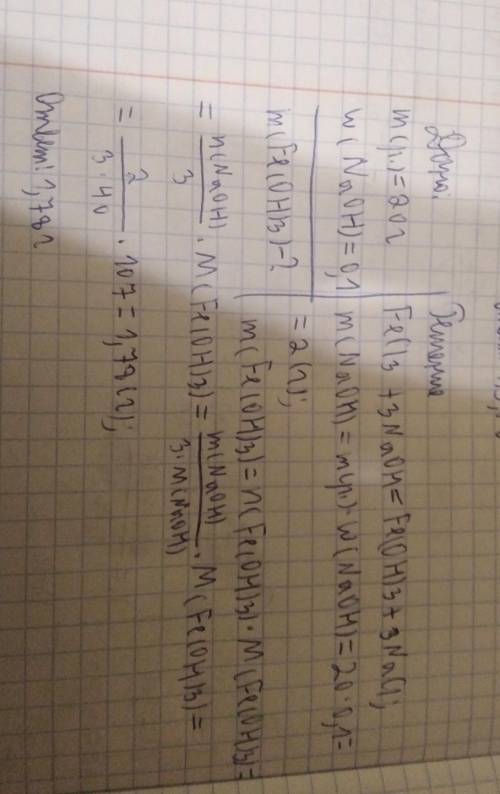 Дано:
m(р) = 20г
w(NaOH) = 0,1
m(Fe(OH)3) - ?
Решение
FeCl3 + 3NaOH = Fe(OH)3 + 3NaCl;
m(NaOH) = m(р) · w(NaOH) = 20 · 0,1 =
= 2(г);
m(Fe(OH)3) = n(Fe(OH)3) · M(Fe(OH)3) =
= n(NaOH)/3 · M(Fe(OH)3) = m(NaOH)/3·M(NaOH) · M(Fe(OH)3) =
= 2/3·40 · 107 = 1,78(г);
Ответ: 1,78г